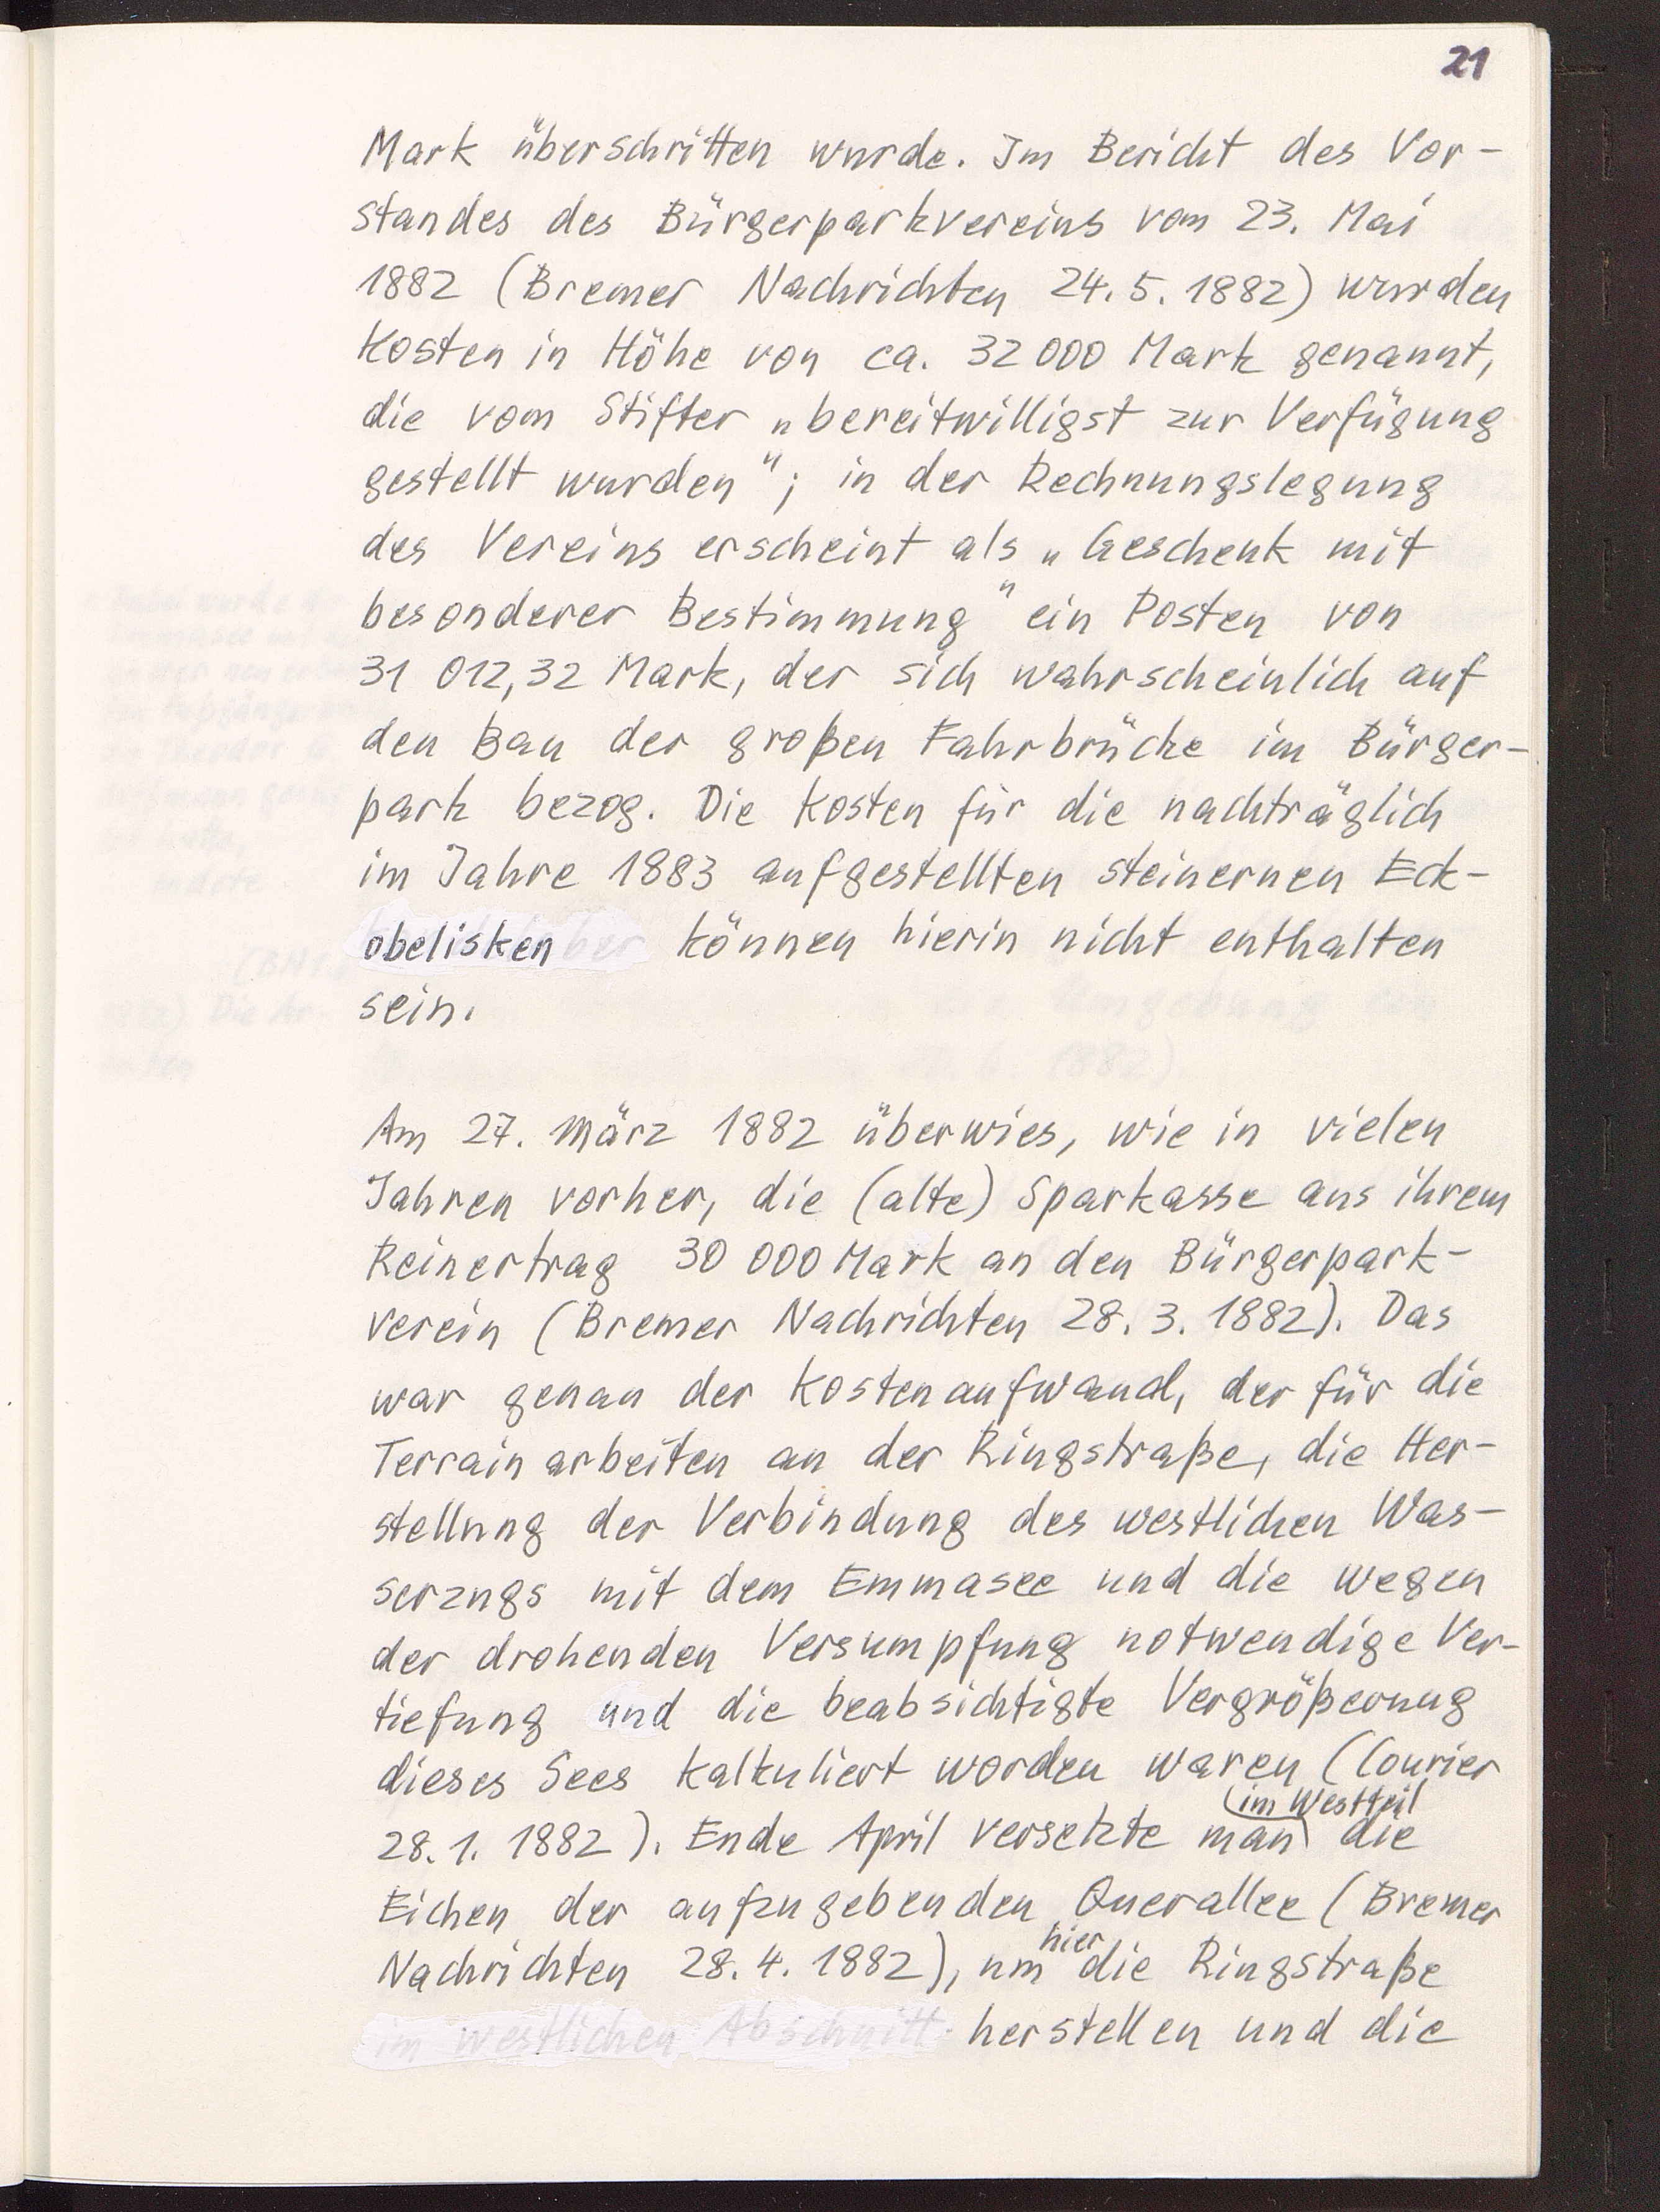 21
Mark überschritten wurde. Im Bericht des Vor-
standes des Bürgerparkvereins vom 23. Mai
1882 (Bremer Nachrichten 24. 5. 1882) wurden
Kosten in Höhe von ca. 32 000 Mark genannt,
die vom Stifter „bereitwilligst zur Verfügung
gestellt wurden"; in der Rechnungslegung
des Vereins erscheint als „Geschenk mit
besonderer Bestimmung" ein Posten von
31 012,32 Mark, der sich wahrscheinlich auf
den Bau der großen Fahrbrücke im Bürger-
park bezog. Die Kosten für die nachträglich
im Jahre 1883 aufgestellten steinernen Eck-
obelisken können hierin nicht enthalten
sein.
Am 27. März 1882 überwies, wie in vielen
Jahren vorher, die (alte) Sparkasse aus ihrem
Reinertrag 30 000 Mark an den Bürgerpark-
verein (Bremer Nachrichten 28. 3. 1882). Das
war genau der Kostenaufwand, der für die
Terrainarbeiten an der Ringstraße, die Her-
stellung der Verbindung des westlichen Was-
serzugs mit dem Emmasee und die wegen
der drohenden Versumpfung notwendige Ver-
tiefung und die beabsichtigte Vergrößerung
dieses Sees kalkuliert worden waren (Courier
im Westteil
28. 1. 1882). Ende April versetzte man die
Eichen der aufzugebenden Querallee (Bremer
hier
Nachrichten 28. 4. 1882), um die Ringstraße
im westlichen Abschnitt herstellen und die